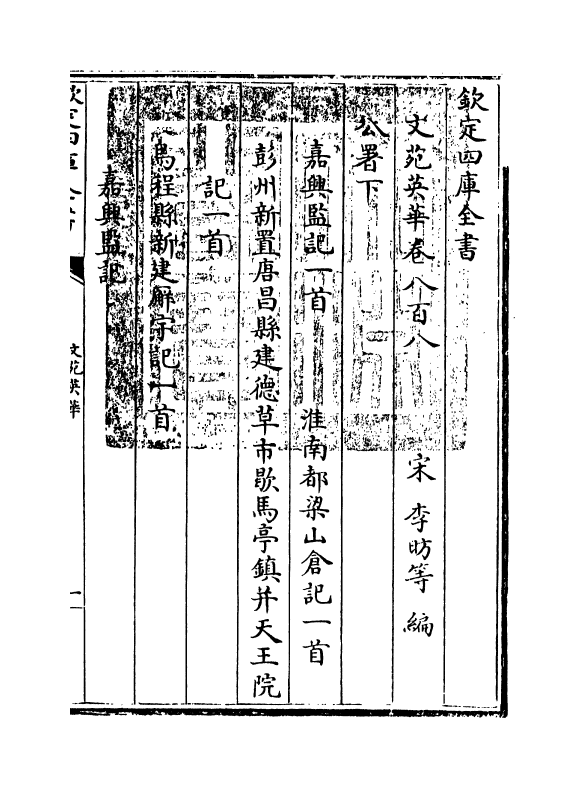 欽定四庫全書
文苑英華卷八百八
宋 李昉等 編
公署下
嘉興監記一首 淮南都梁山倉記一首
彭州新置唐昌縣建德草市歇馬亭鎮并天王院
記一首
烏程縣新建廨宇記一首
嘉興監記
欽定四庫全書
文苑英華
一